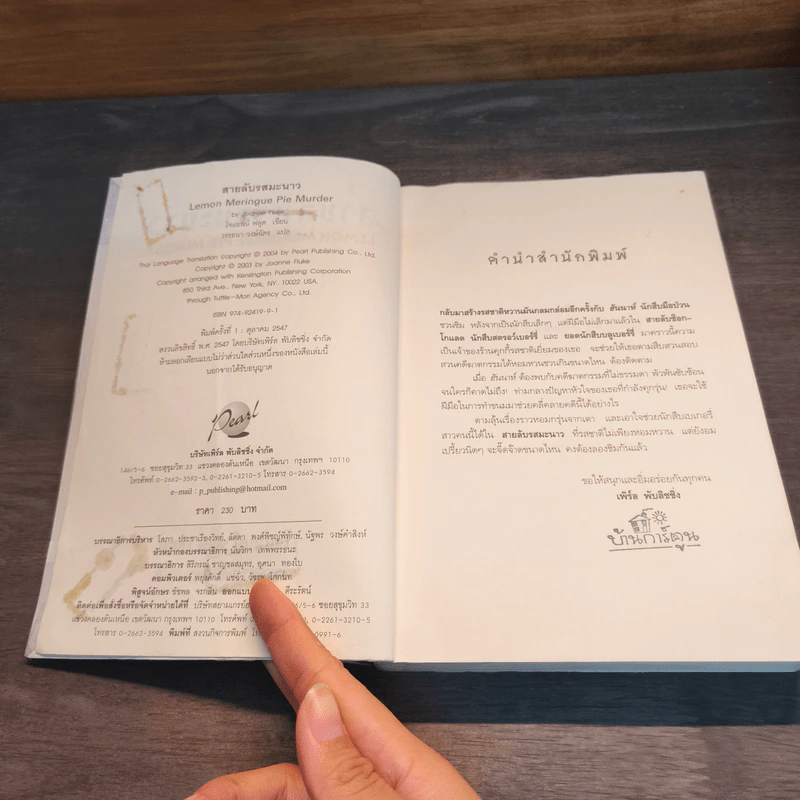 สายลับรสมะนาว
Lemon Meringue Pie Murder
by Joanne Fluke
โจแอนน์ ฟลุค เขียน
วรรธนา วงษ์ฉัตร แปล
Thai Language Translation copyright © 2004 by Pearl Publishing Co., Ltd.
Copyright © 2003 by Joanne Fluke
Copyright arranged with Kensington Publishing Corporation
850 Third Ave., New York, NY. 10022 USA.
through Tuttle-Mori Agency Co., Ltd.
ISBN 974-92419-9-1
พิมพ์ครั้งที่ 1 : ตุลาคม 2547
สงวนลิขสิทธิ์ พ.ศ. 2547 โดยบริษัทเพิร์ล พับลิชชิ่ง จำกัด
ห้ามลอกเลียนแบบไม่ว่าส่วนใดส่วนหนึ่งของหนังสือเล่มนี้
นอกจากได้รับอนุญาต
Pearl
บริษัทเพิร์ล พับลิชชิ่ง จำกัด
146/5-6 ซอยสุขุมวิท 33 แขวงคลองตันเหนือ เขตวัฒนา กรุงเทพฯ 10110
โทรศัพท์ 0-2662-3592-3, 0-2261-3210-5 โทรสาร 0-2662-3594
e-mail : p_publishing@hotmail.com
ราคา 230 บาท
บรรณาธิการบริหาร โสภา ประชาเรืองวิทย์, ลัดดา พงศ์พิชญ์พิทักษ์, นัฐพร วงษ์คำสิงห์
หัวหน้ากองบรรณาธิการ นันวิภา เทพพรธนะ
บรรณาธิการ สิริภรณ์ ชาญชลสมุทร, อุศนา ทองใบ
คอมพิวเตอร์ พยุงศักดิ์ แซ่จั่ว, วัชรพ
พิสูจน์อักษร รัชพล จรกลิ่น ออกแบบ ดีระรัตน์
ติดต่อเพื่อสั่งซื้อหรือจัดจำหน่ายได้ที่ บริษัทสยามเกรย์ฮ 6/5-6 ซอยสุขุมวิท 33
แขวงคลองตันเหนือ เขตวัฒนา กรุงเทพฯ 10110 โทรศัพท์ 0-2261-3210-5
โทรสาร 0-2662-3594 พิมพ์ที่ สงวนกิจการพิมพ์ 0991-6
คำนำสำนักพิมพ์
กลับมาสร้างรสชาติหวานมันกลมกล่อมอีกครั้งกับ ฮันนาห์ นักสืบมือป่วน
ชวนชิม หลังจากเป็นนักสืบเล็กๆ แต่ฝีมือไม่เล็กมาแล้วใน สายลับช็อก-
โกแลต นักสืบสตรอว์เบอร์รี่ และ ยอดนักสืบบลูเบอร์รี่ มาคราวนี้ความ
เป็นเจ้าของร้านคุกกี้รสชาติเยี่ยมของเธอ จะช่วยให้เธอตามสืบสวนสอบ
สวนคดีฆาตกรรมได้หอมหวนชวนกินขนาดไหน ต้องติดตาม
เมื่อ ฮันนาห์ ต้องพบกับคดีฆาตกรรมที่ไม่ธรรมดา พัวพันซับซ้อน
จนใครก็คาดไม่ถึง! ท่ามกลางปัญหาหัวใจของเธอที่กำลังคุกรุ่น! เธอจะใช้
ฝีมือในการทำขนมมาช่วยคลี่คลายคดีนี้ได้อย่างไร
ตามลุ้นเรื่องราวหอมกรุ่นจากเตา และเอาใจช่วยนักสืบเบเกอรี่
สาวคนนี้ได้ใน สายลับรสมะนาว ที่รสชาติไม่เพียงหอมหวาน แต่ยังอม
เปรี้ยวนิดๆ จะจี๊ดจ๊าดขนาดไหน คงต้องลองชิมกันแล้ว
ขอให้สนุกและอิ่มอร่อยกันทุกคน
เพิร์ล พับลิชชิ่ง
บ้านการ์ตูน